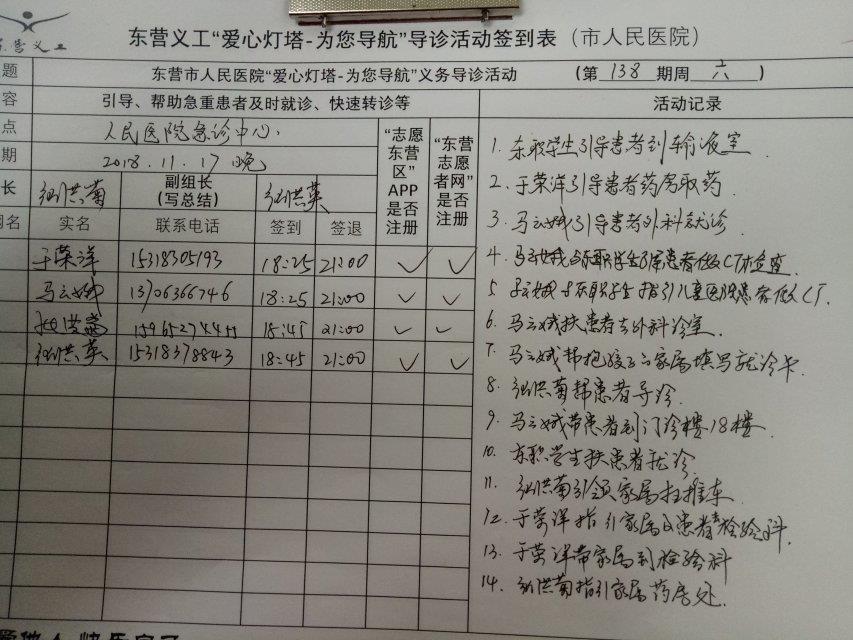 营义工
东营义工“爱心灯塔-为您导航”导诊活动签到表（市人民医院）
题 东营市人民医院“爱心灯塔-为您导航”义务导诊活动 (第 138 期周 六 )
容 引导、帮助急重患者及时就诊、快速转诊等 活动记录
点 人民医院急诊中心. “志愿东营区”APP是否注册 “东营志愿者网”是否注册
期 2018.11.17 晚
长 副组长(写总结)
网名 实名 联系电话 签到 签退
于荣洋 15318305193 18:25 21:00 ✓ ✓
马云娥 13706366746 18:25 21:00 ✓ ✓
21:00 ✓ ✓
15318378843 18:45 21:00 ✓ ✓
1. 东职学生引导患者到输液室.
2. 于荣洋引导患者药房取药
3. 马云娥引导患者外科就诊.
4. 马云娥与东职学生引导患者做CT检查.
5. 马云娥与东职学生指引儿童患者做CT.
6. 马云娥扶患者去外科诊室.
7. 马云娥帮抱孩子的家属填写就诊卡
8. 洪菊帮患者导诊.
9. 马云娥带患者到门诊楼18楼.
10. 东职学生扶患者就诊.
11. 洪菊引领家属找推车.
12. 于荣洋指引家属及患者检验科.
13. 于荣洋带家属到检验科
14. 洪菊指引家属药房处.